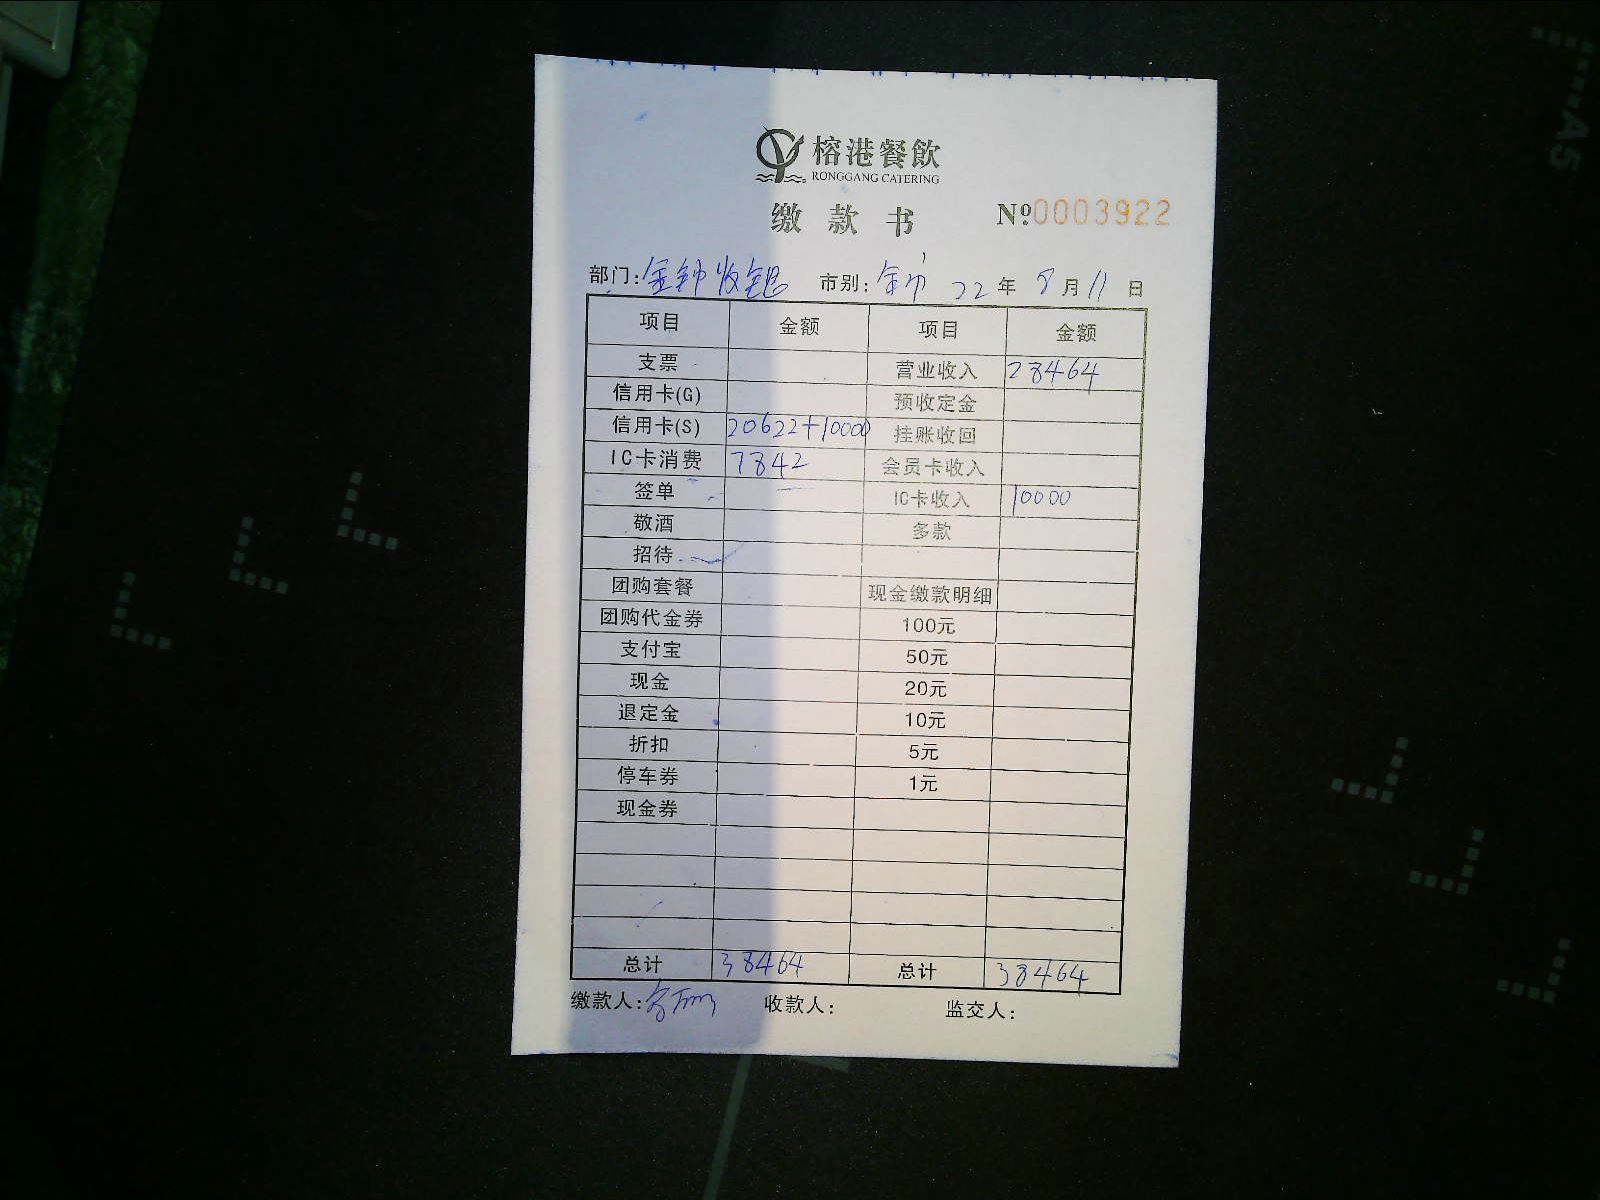 榕港餐飲
RONGGANG CATERING
缴款书 №0003922
部门: 金钟收银 市别: 全市 22年8月11日
项目 金额 项目 金额
支票 营业收入 28464
信用卡(G) 预收定金
信用卡(S) 20622+10000 挂账收回
IC卡消费 7842 会员卡收入
签单 IC卡收入 10000
敬酒 多款
招待
团购套餐 现金缴款明细
团购代金券 100元
支付宝 50元
现金 20元
退定金 10元
折扣 5元
停车券 1元
现金券
总计 38464 总计 38464
缴款人: 收款人: 监交人:
A5